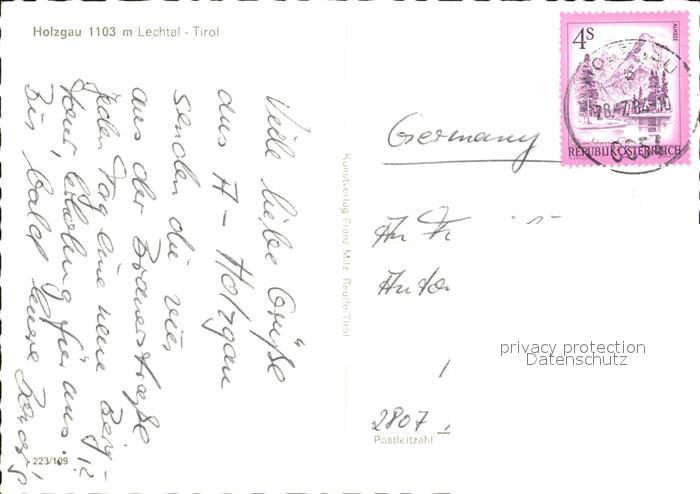 Holzgau 1103 m Lechtal - Tirol
Viele liebe Grüße
aus A - Holzgau
senden die vier
aus der Brauerstraße
Jeden Tag eine neue Berg-
tour, Erholung für uns!?
Bis bald
223/109
Kunstverlag Franz Milz Reutte Tirol
4S
ALMSEE
REPUBLIK ÖSTERREICH
28.-7.84-10
Germany
An
2807
Postleitzahl
privacy protection
Datenschutz